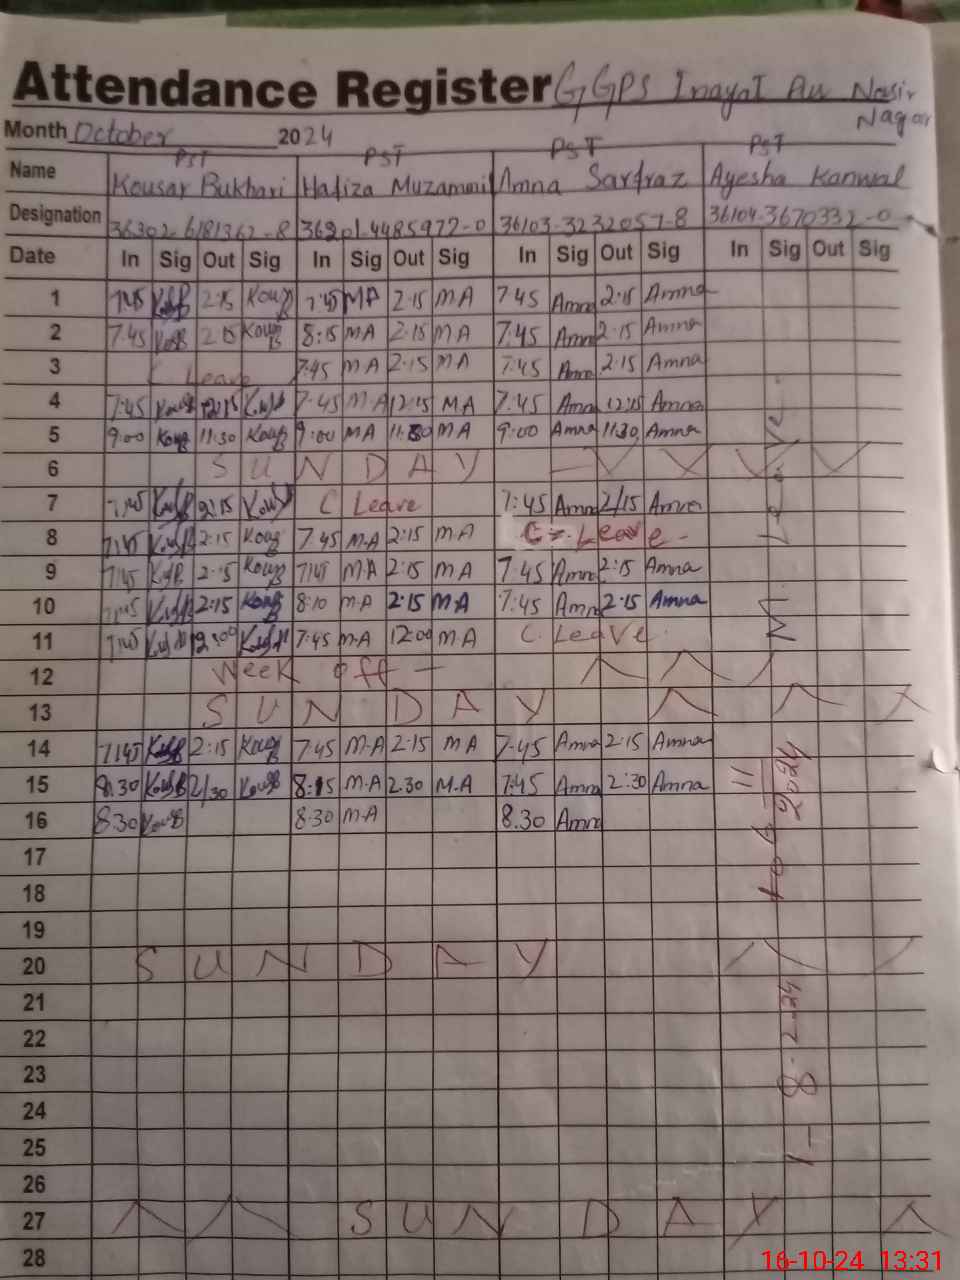 Attendance Register GGPS Inayat Ali Nasir
Nagar
Month October 2024
PST PST PST PST
Name Kousar Bukhari Hafiza Muzammil Amna Sarfraz Ayesha Kanwal
Designation 36302-6181362-8 36201-4485972-0 36103-3232057-8 36104-3670332-0
Date In Sig Out Sig In Sig Out Sig In Sig Out Sig In Sig Out Sig
1 7:45 2:15 7:45 MA 2:15 MA 7:45 Amna 2:15 Amna
2 7:45 2:15 8:15 MA 2:15 MA 7:45 Amna 2:15 Amna
3 C Leave 7:45 MA 2:15 MA 7:45 Amna 2:15 Amna
4 7:45 12:15 7:45 MA 12:15 MA 7:45 Amna 12:15 Amna
5 9:00 11:30 9:00 MA 11:30 MA 9:00 Amna 11:30 Amna
6 SUNDAY
7 7:45 2:15 C Leave 7:45 Amna 2/15 Amna
8 7:45 2:15 7:45 M-A 2:15 MA C. Leave
9 7:45 2:15 7:45 M-A 2:15 MA 7:45 Amna 2:15 Amna
10 7:45 2:15 8:10 M-A 2:15 M-A 7:45 Amna 2:15 Amna
11 7:45 12:00 7:45 M-A 12:00 M-A C. Leave
12 Week off
13 SUNDAY
14 7:45 2:15 7:45 M-A 2:15 MA 7:45 Amna 2:15 Amna
15 8:30 2/30 8:15 M-A 2:30 M-A 7:45 Amna 2:30 Amna
16 8:30 8:30 M-A 8:30 Amna
17
18
19
20 SUNDAY
21
22
23
24
25
26
27 SUNDAY
28
M. Leave
16-10-24 13:31